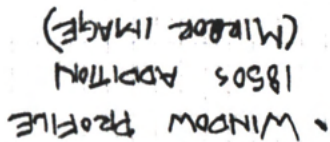 • WINDOW PROFILE
1850s ADDITION
(MIRROR IMAGE)